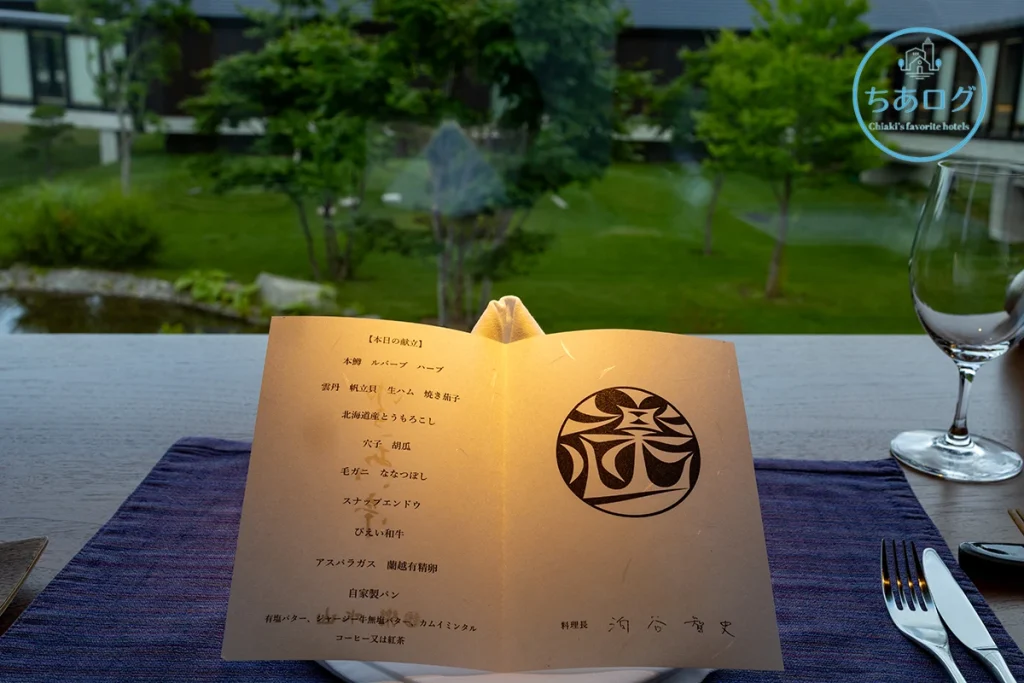 【本日の献立】
本鱒 ルバーブ ハーブ
雲丹 帆立貝 生ハム 焼き茄子
北海道産とうもろこし
穴子 胡瓜
毛ガニ ななつぼし
スナップエンドウ
びえい和牛
アスパラガス 蘭越有精卵
自家製パン
有塩バター、ジャージー牛無塩バター、カムイミンタル
コーヒー又は紅茶
料理長
ちあログ
Chiaki's favorite hotels